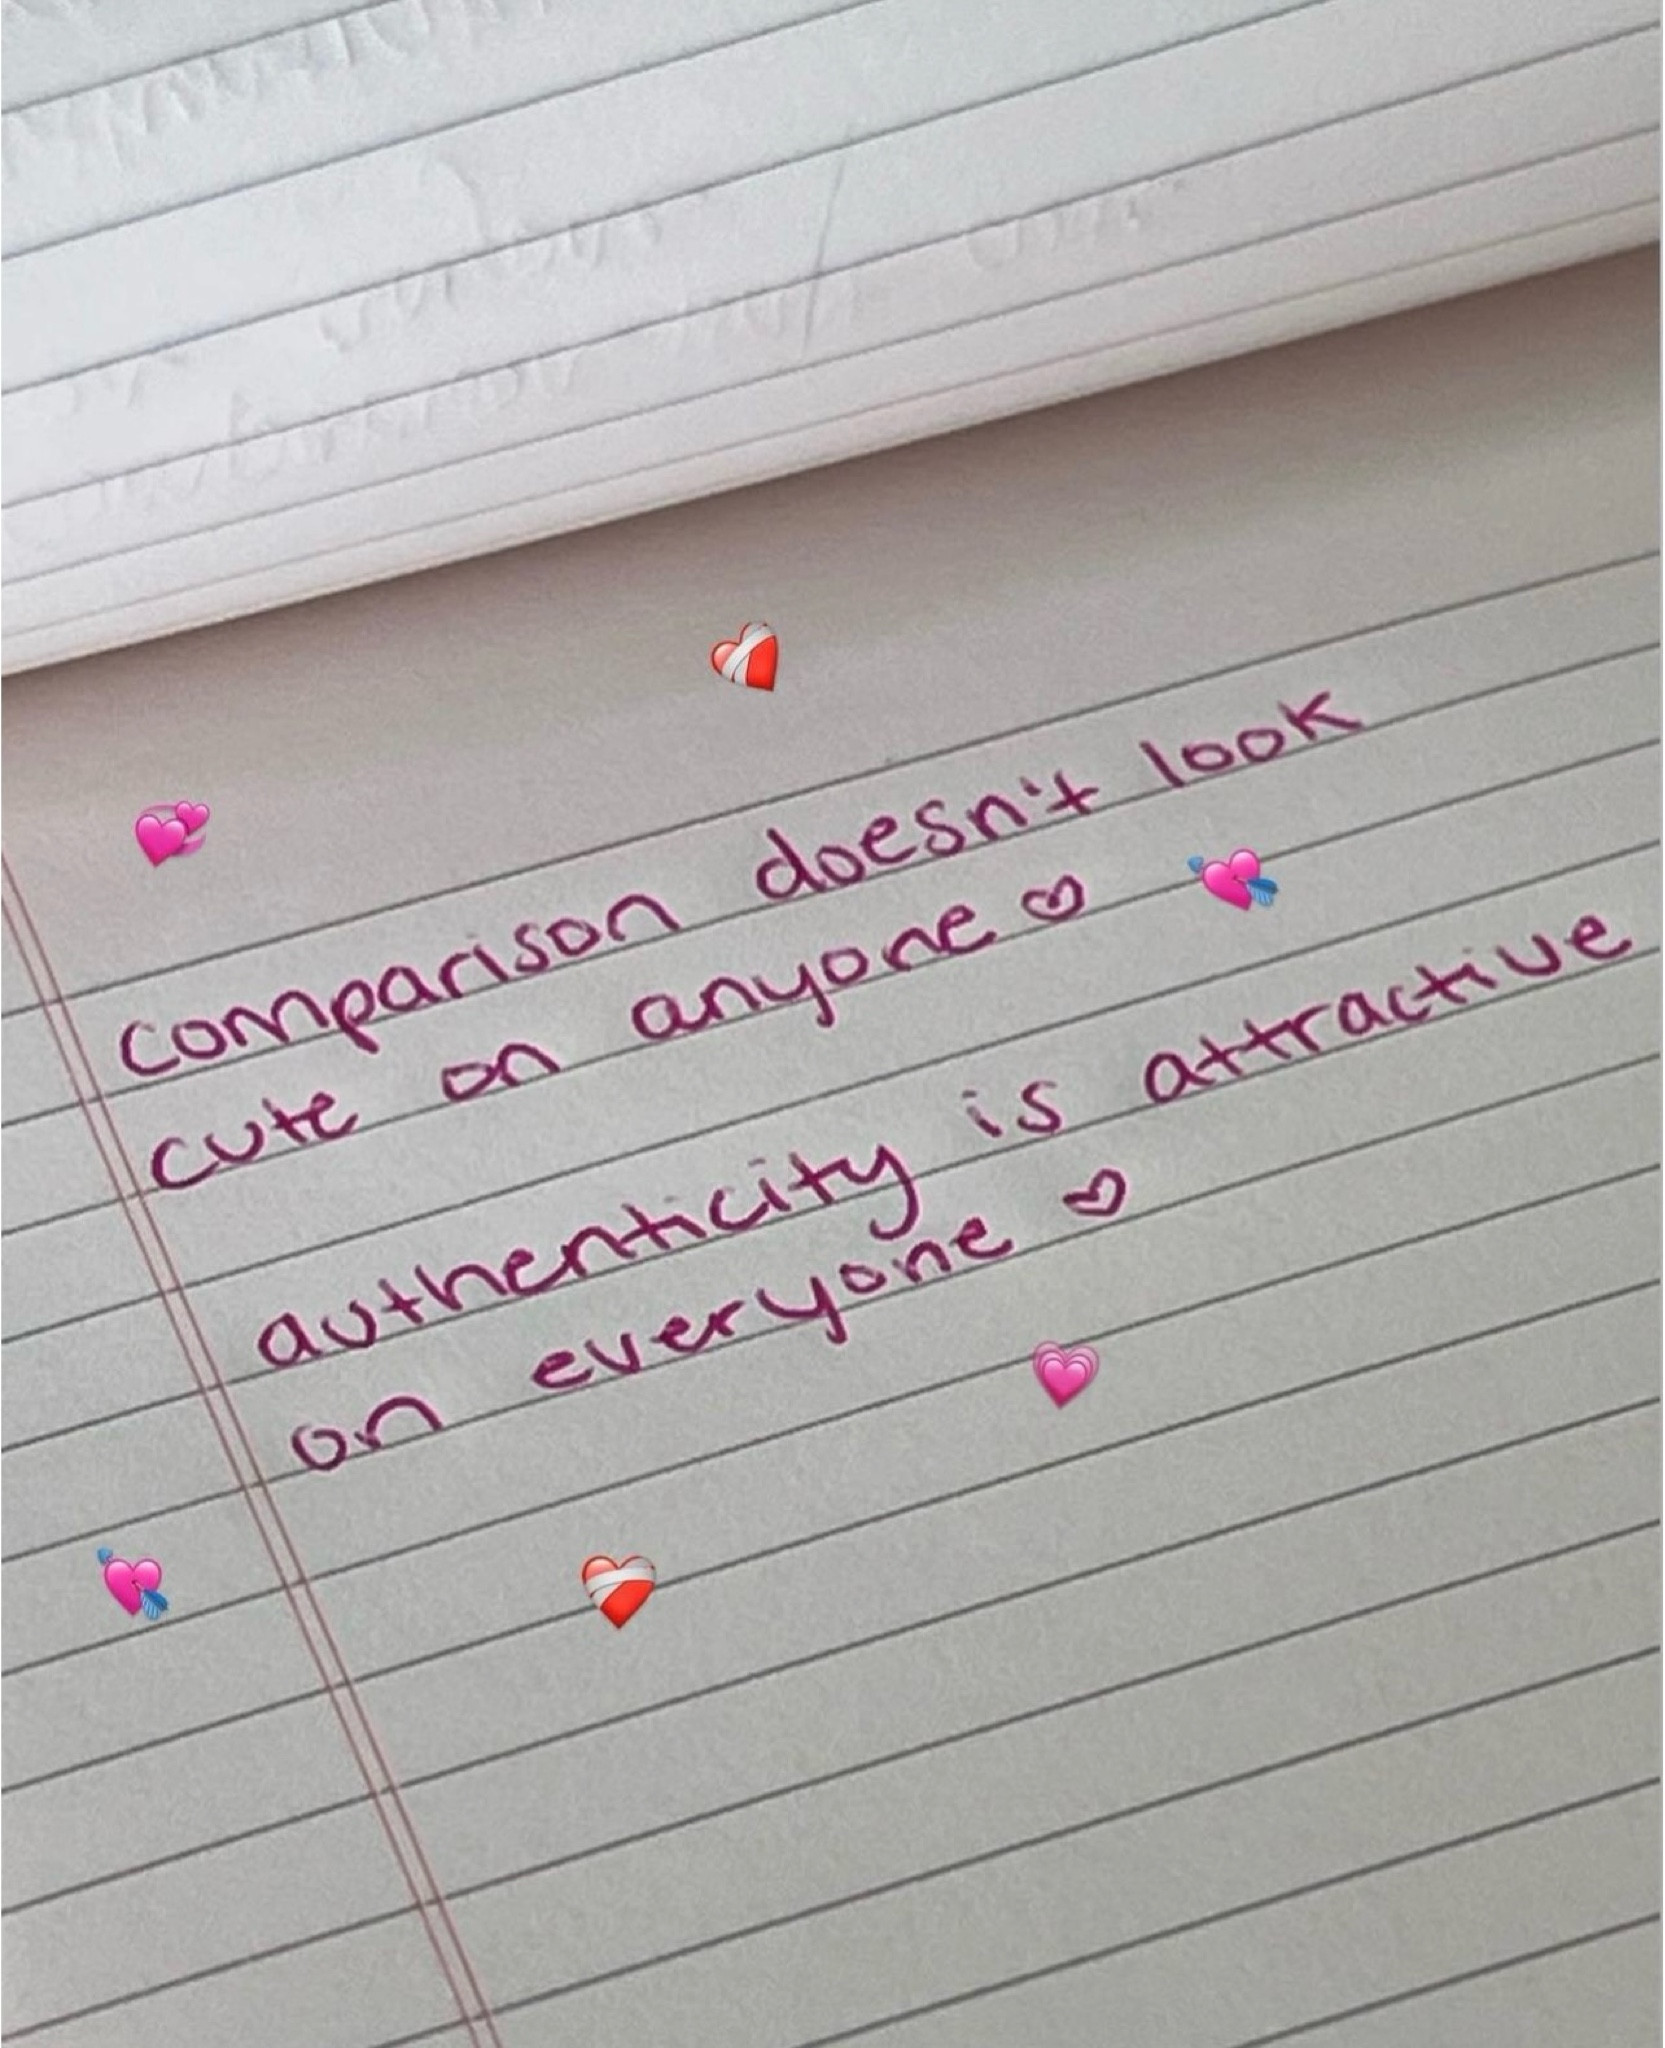 comparison doesn't look
cute on anyone ♡
authenticity is attractive
on everyone ♡